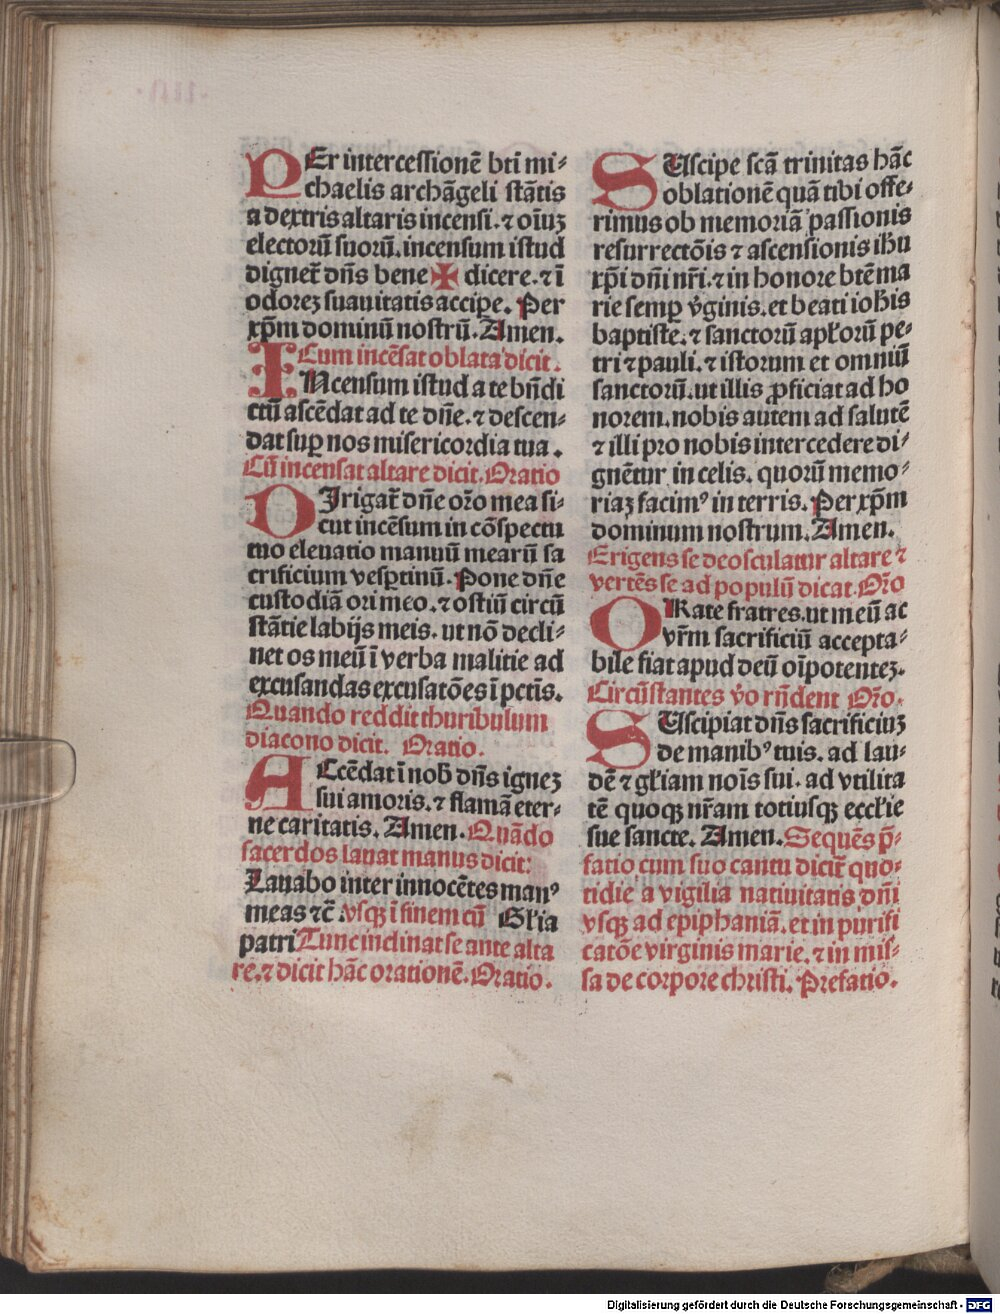 PEr intercessionē bti mi⸗
chaelis archāgeli stātis
a dextris altaris incensi. ⁊ oīuꝫ
electorū suorū. incensum istud
digneť dn̄s bene ✠ dicere. ⁊ ī
odorez suauitatis accipe. Per
xp̄m dominū nostrū. Amen.
Cum incēsat oblata dicit.
INcensum istud a te bn̄di
ctū ascēdat ad te dn̄e. ⁊ descen⸗
dat suꝑ nos misericordia tua.
Cū incensat altare dicit. Oratio
DIrigať dn̄e or̄o mea si⸗
cut incēsum in cōspectu
tuo eleuatio manuū mearū sa
crificium vesꝑtinū. Pone dn̄e
custodiā ori meo. ⁊ ostiū circū
stātie labijs meis. ut nō decli⸗
net os meū ī verba malitie ad
excusandas excusatōes ī pctīs.
Quando reddit thuribulum
diacono dicit. Oratio.
ACcēdat ī nob̄ dn̄s ignez
sui amoris. ⁊ flamā eter⸗
ne caritatis. Amen. Quādo
sacerdos lauat manus dicit:
Lauabo inter innocētes manꝰ
meas ⁊c̄. vsqꝫ ī finem cū Gl̄ia
patri Tunc inclinat se ante alta
re. ⁊ dicit hāc orationē. Oratio.
SUscipe scā trinitas hāc
oblationē quā tibi offe⸗
rimus ob memoriā passionis
resurrectōis ⁊ ascensionis ih̄u
xp̄i dn̄i nr̄i. ⁊ in honore btē ma
rie semꝑ v̄ginis. et beati ioh̄is
baptiste. ⁊ sanctorū apl̄orū pe⸗
tri ⁊ pauli. ⁊ istorum et omniū
sanctorū. ut illis ꝓficiat ad ho
norem. nobis autem ad salutē
⁊ illi pro nobis intercedere di⸗
gnētur in celis. quorū memo⸗
riaꝫ facimꝰ in terris. Per xp̄m
dominum nostrum. Amen.
Erigens se deosculatur altare ⁊
vertēs se ad populū dicat. Or̄o
ORate fratres. ut meū ac
vr̄m sacrificiū accepta⸗
bile fiat apud deū oīpotentez.
Circūstantes v̄o rn̄dent Or̄o.
SUscipiat dn̄s sacrificiuꝫ
de manibꝰ tuis. ad lau⸗
dē ⁊ gl̄iam noīs sui. ad vtilita
tē quoqꝫ nr̄am totiusqꝫ eccl̄ie
sue sancte. Amen. Sequēs p̄⸗
fatio cum suo cantu diciť quo⸗
tidie a vigilia natiuitatis dn̄i
vsqꝫ ad epiphaniā. et in purifi
catōe virginis marie. ⁊ in mis⸗
sa de corpore christi. Prefatio.
Digitalisierung gefördert durch die Deutsche Forschungsgemeinschaft - DFG